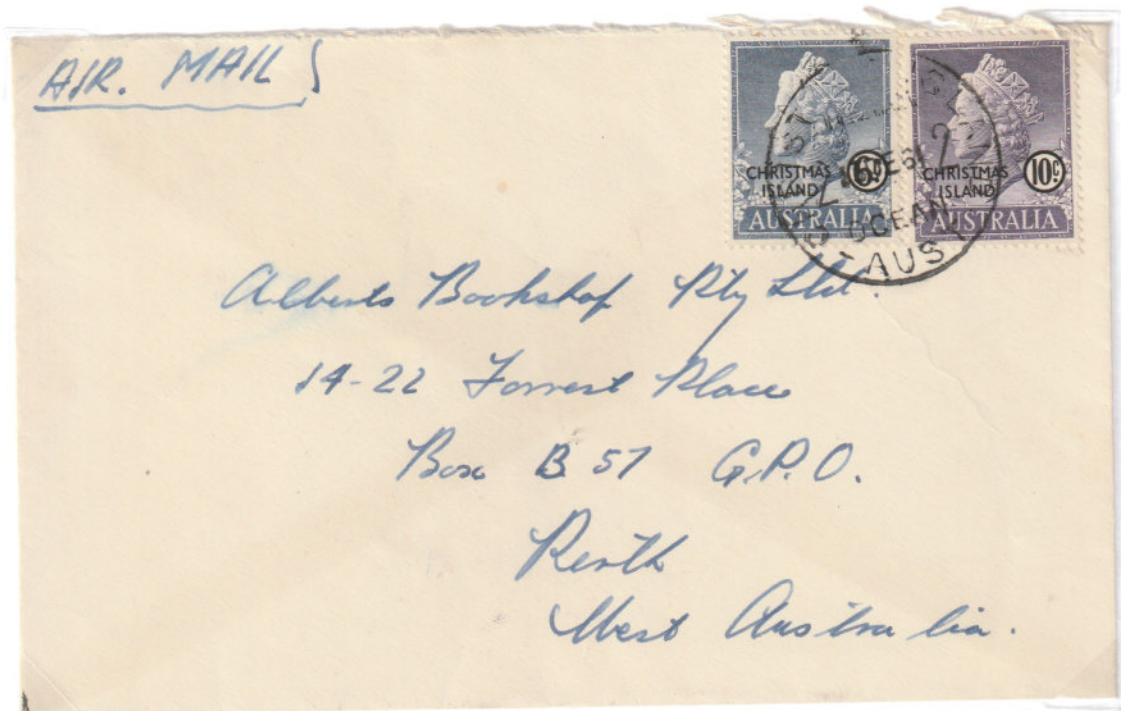 AIR. MAIL
CHRISTMAS
ISLAND
6c
AUSTRALIA
CHRISTMAS
ISLAND
10c
AUSTRALIA
OCEAN
AUS
Alberts Bookshop Pty Ltd.
14-22 Forrest Place
Box B 57 G.P.O.
Perth
West Australia.